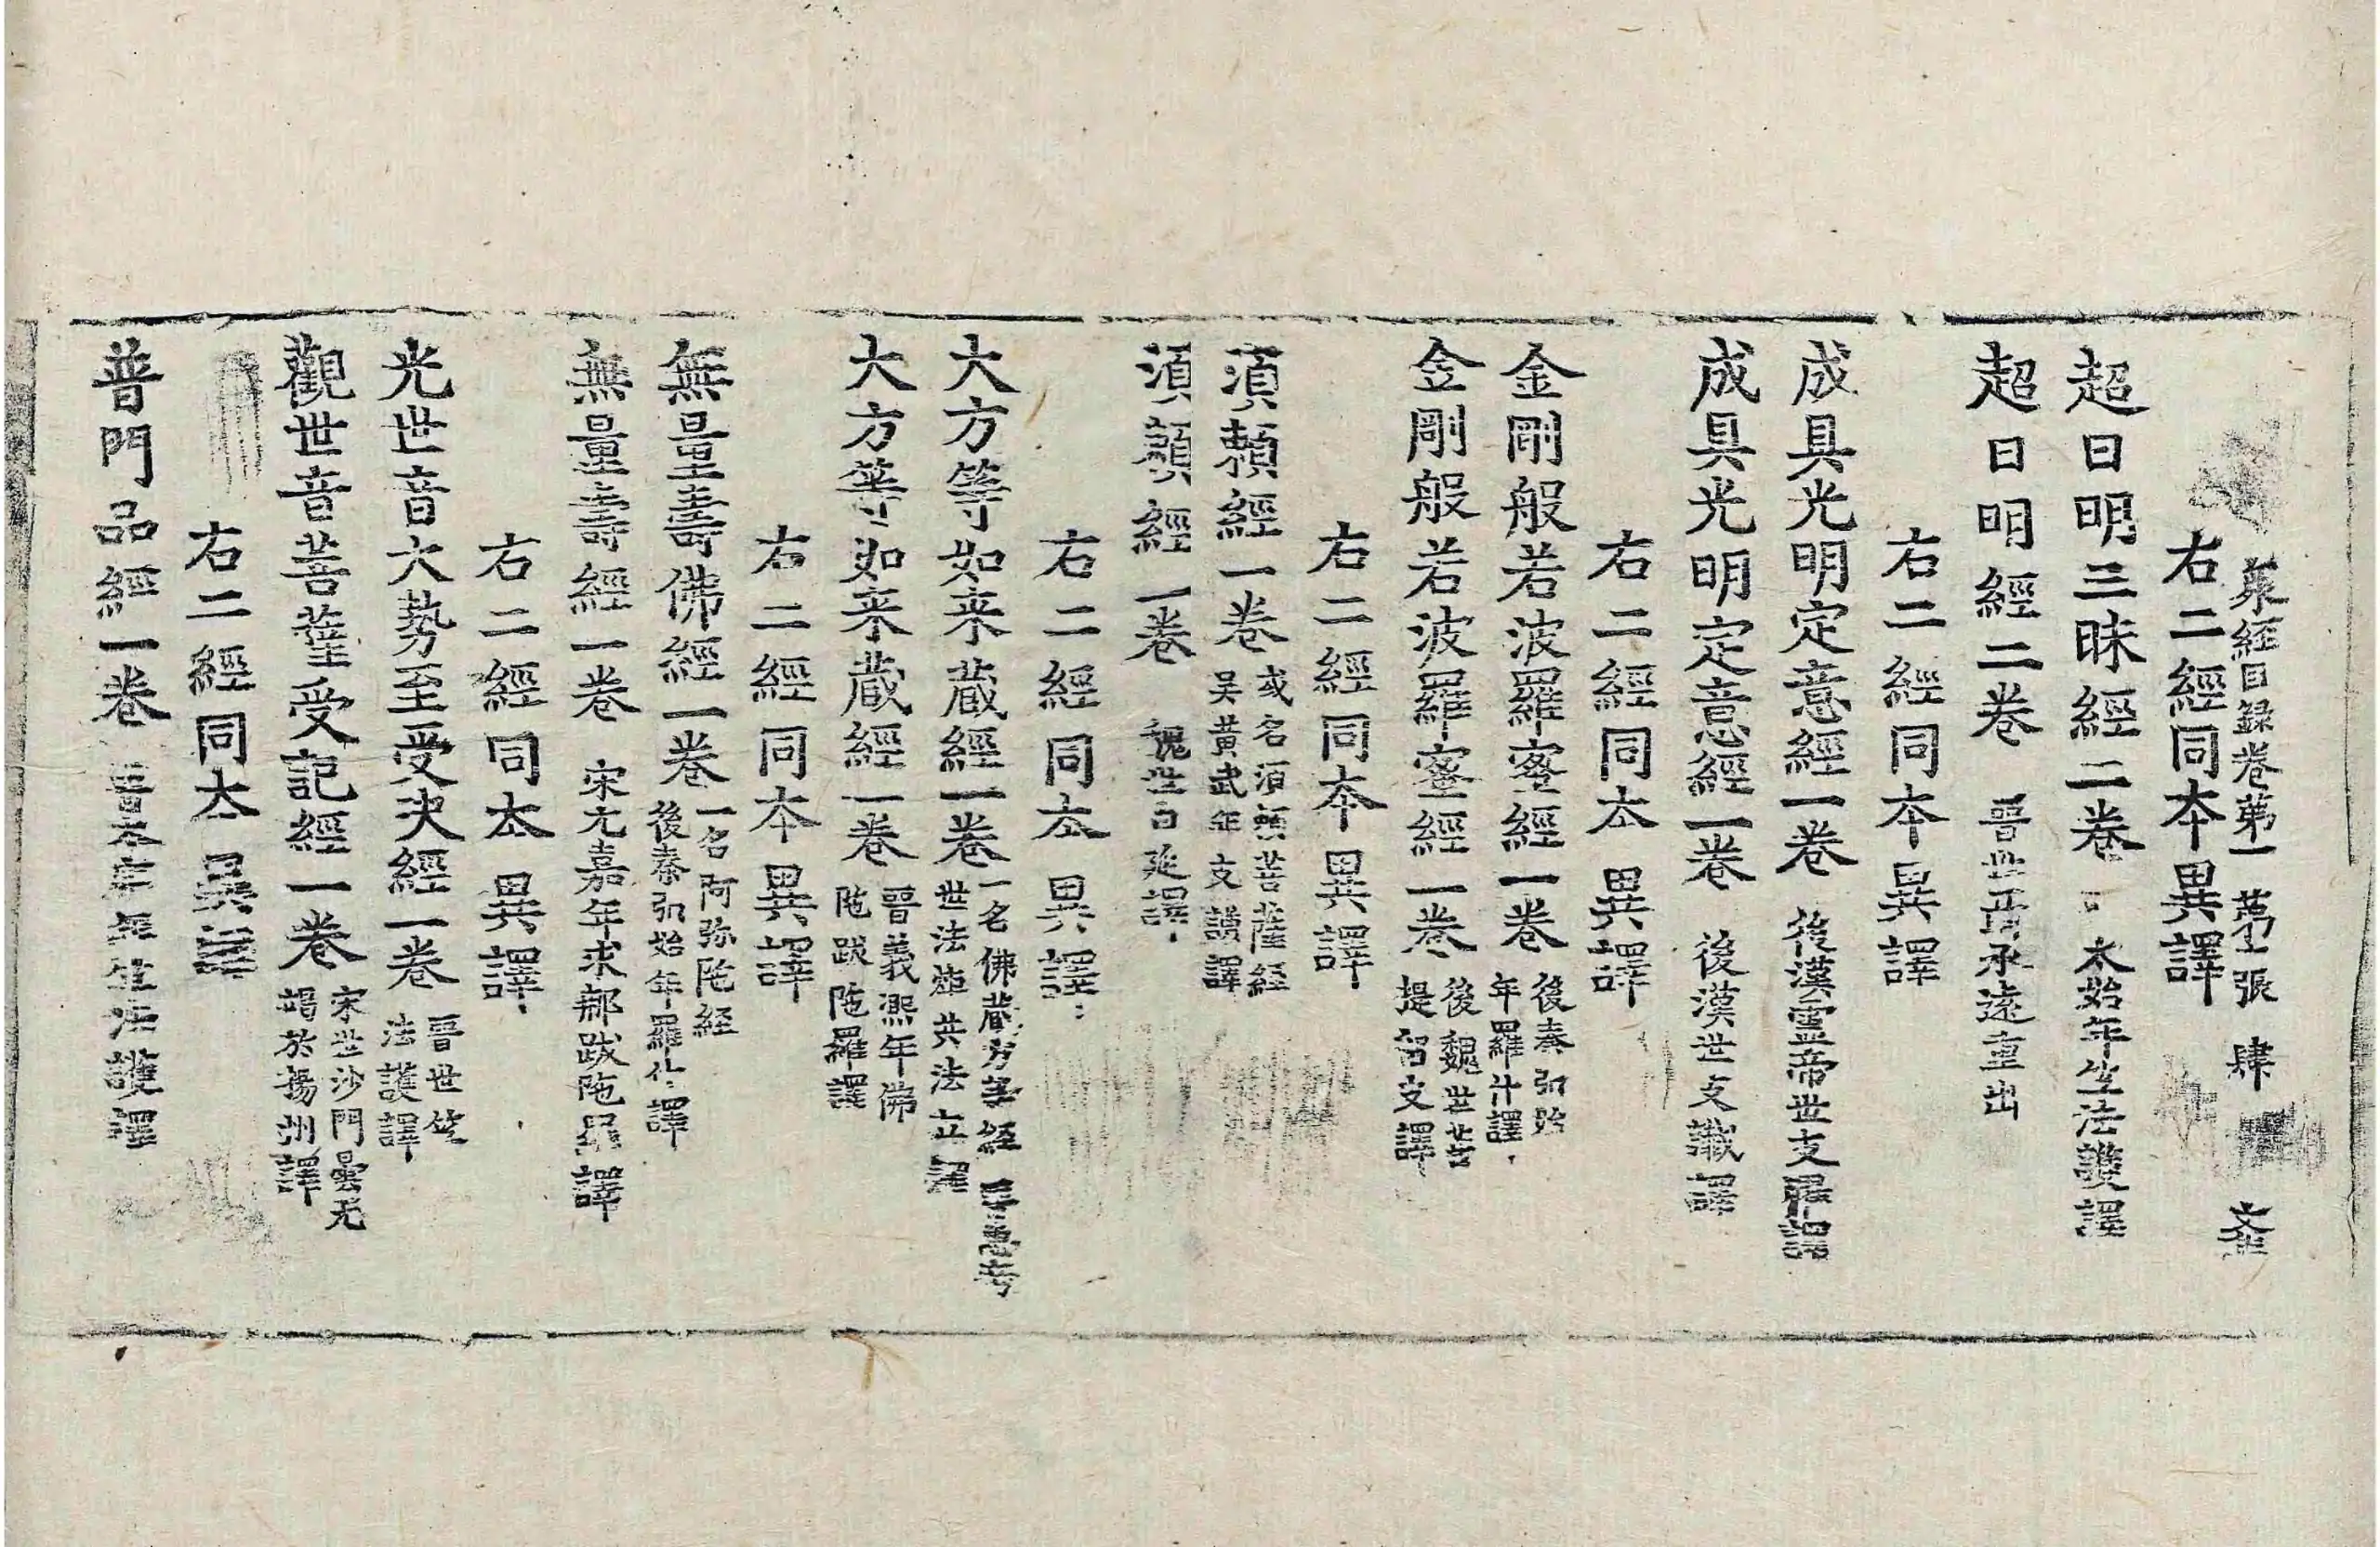 衆經目録卷第一 第十張 肆
右二經同本異譯
超日明三昧經二卷 太始年竺法護譯
超日明經二卷 晋世聶承遠重出
右二經同本異譯
成具光明定意經一卷 後漢靈帝世支曜譯
成具光明定意經一卷 後漢世支讖譯
右二經同本異譯
金剛般若波羅蜜經一卷 後秦弘始年羅什譯
金剛般若波羅蜜經一卷 後魏世菩提留支譯
右二經同本異譯
湏賴經一卷 或名湏賴菩薩經吴黄武年支謙譯
湏賴經一卷 魏世白延譯
右二經同本異譯
大方等如来蔵經一卷 一名佛蔵方等經 世法炬共法立譯
大方等如来蔵經一卷 晋義熙年佛陁跋陁羅譯
右二經同本異譯
無量壽佛經一卷 一名阿弥陁經後秦弘始年羅什譯
無量壽經一卷 宋元嘉年求那跋陁羅譯
右二經同本異譯
光世音大勢至受决經一卷 晋世竺法護譯
觀世音菩薩受記經一卷 宋世沙門曇无竭於揚州譯
右二經同本異譯
普門品經一卷 晋太康年竺法護譯